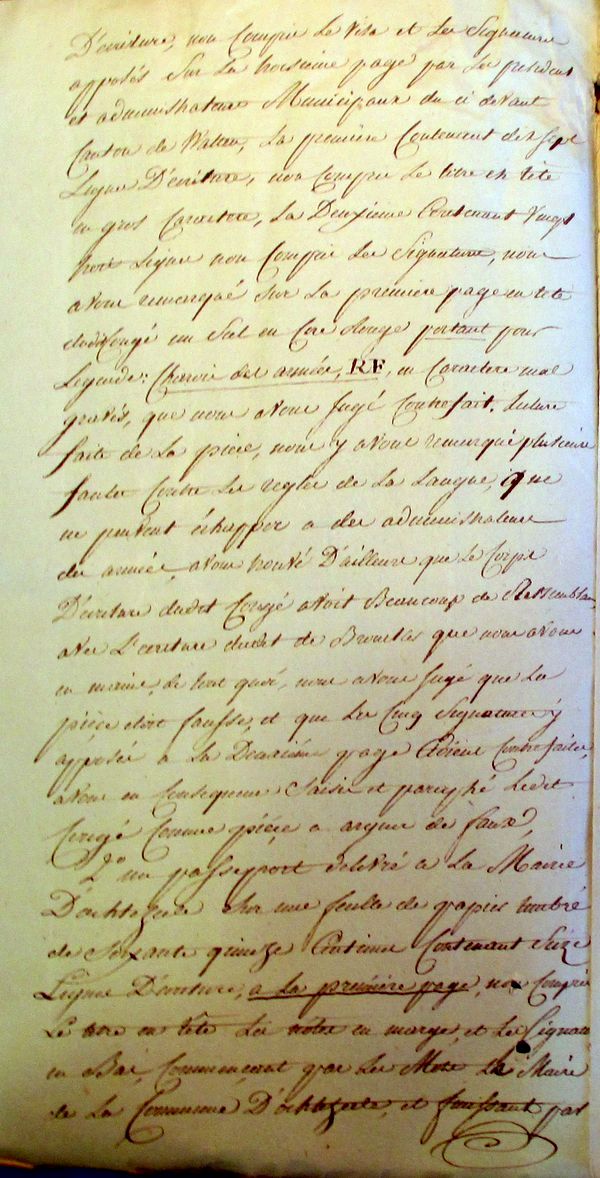 D'écriture, non Compris le Visa et les Signatures
apposés Sur La troisieme page par Les president
et administrateurs Municipaux du ci devant
Canton de Watten, La première Contenant dix Sept
Lignes D'écriture, non Compris Le titre en tête
en gros Caractere, La Deuxième Contenant Vingt
trois Lignes non Compris Les Signatures, nous
avons remarqué sur La première page en tête
dudit Congé un Scel en Cire Rouge portant pour
Legende: Charrois des armées, RF, en Caractere mal
gravés, que nous avons Jugé Contrefait. Lecture
faite de La pièce, nous y avons remarqué plusieurs
fautes Contre Les regles de La Langue, que
ne peuvent échapper a des administrateurs
des armées, avons trouvé D'ailleurs que Le Corps
D'écriture dudit Congé avoit Beaucoup de Ressemblan
avec L'écriture dudit de que nous avons
en mains, de tout quoi, nous avons Jugé que La
pièce étoit fausse, et que Les Cinq Signatures y
apposés a La Deuxième page étoient Contrefaites,
avons en Consequence Saisie et paraphé Ledit
Congé Comme pièce a arguer de faux,
2.° un passeport délivré a La Mairie
D'ochtezeele sur une feuille de papier timbré
de Soixante quinze Centimes Contenant Seize
Lignes D'écriture, a La première page, non Compris
Le titre en tête Les notes en marge, et Les Signatu
en Bas, Commençant par Les Mots Le Maire
de La Commune D'ochtezeele, et finissant par